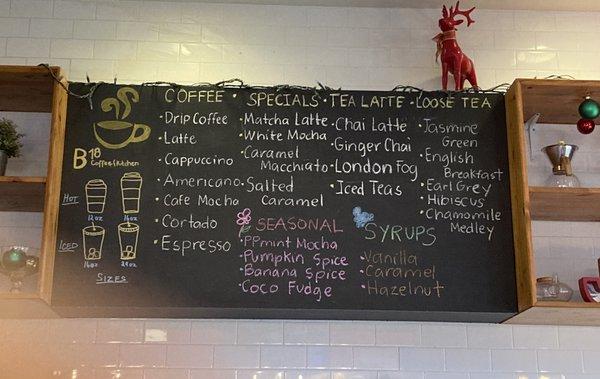 COFFEE
Drip Coffee
Latte
Cappuccino
Americano
Cafe Mocha
Cortado
Espresso
SPECIALS
Matcha Latte
White Mocha
Caramel
Macchiato
Salted
Caramel
TEA LATTE
Chai Latte
Ginger Chai
London Fog
Iced Teas
LOOSE TEA
Jasmine
Green
English
Breakfast
Earl Grey
Hibiscus
Chamomile
Medley
B18
Coffee & Kitchen
HOT
12oz
16oz
ICED
16oz
SIZES
SEASONAL
PPmint Mocha
Pumpkin Spice
Banana Spice
Coco Fudge
SYRUPS
Vanilla
Caramel
Hazelnut